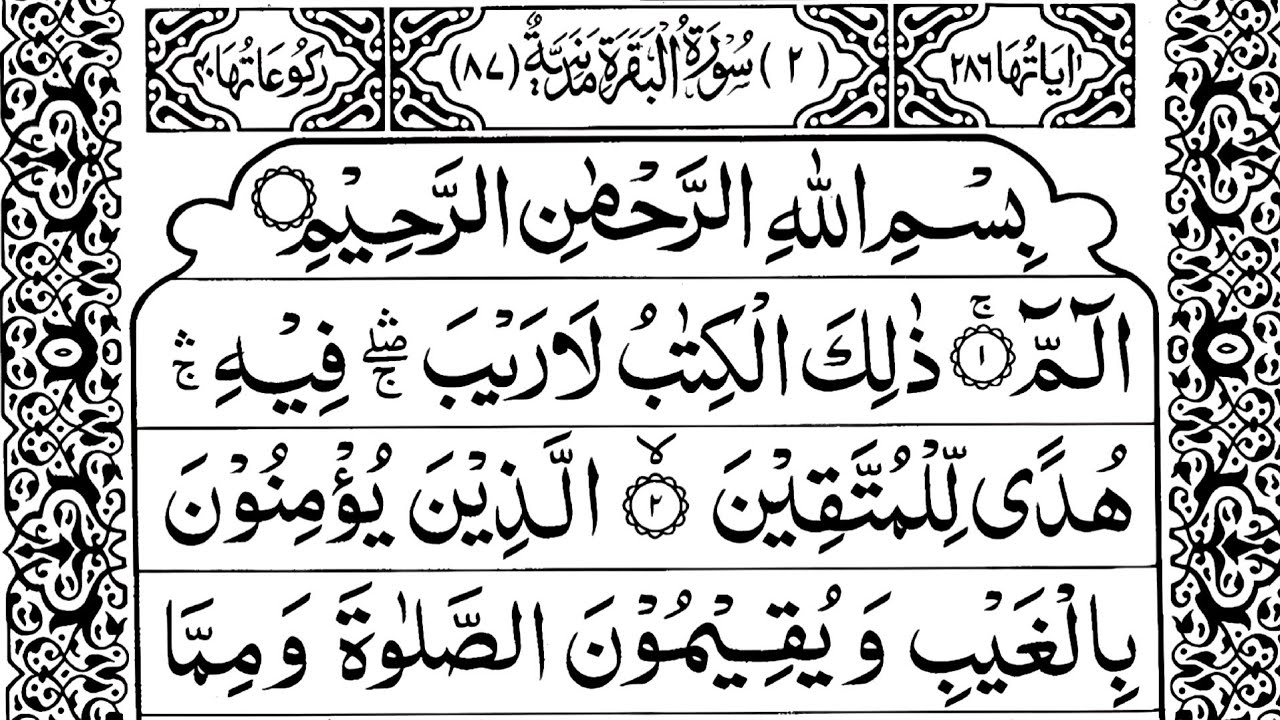 اٰيَاتُهَا ٢٨٦ (٢) سُوْرَةُ الْبَقَرَةِ مَدَنِيَّةٌ (٨٧) رُكُوْعَاتُهَا ٤٠
بِسْمِ اللّٰهِ الرَّحْمٰنِ الرَّحِيْمِ
الٓمّٓ ۚ ﴿١﴾ ذٰلِكَ الْكِتٰبُ لَا رَيْبَ ۖۚ فِيْهِ ۛۚ
هُدًى لِّلْمُتَّقِيْنَ ﴿٢﴾ۙ الَّذِيْنَ يُؤْمِنُوْنَ
بِالْغَيْبِ وَيُقِيْمُوْنَ الصَّلٰوةَ وَمِمَّا